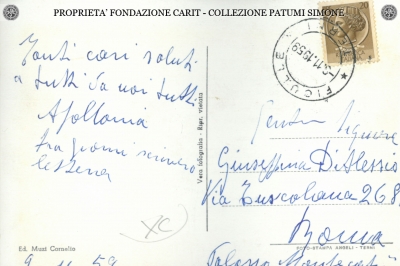 PROPRIETA' FONDAZIONE CARIT - COLLEZIONE PATUMI SIMONE
Tanti cari saluti
a tutti da noi tutti
Apollonia
fra giorni scrivero
lettera
Ed. Muzi Cornelio
9 11 59
Vera fotografia - Ripr. vietata
FICULLE
11.1959
Gentile Signora
Giuseppina Di Alessio
Via Tuscolana 268
Roma
FOTO-STAMPA ANGELI - TERNI
Palazzo
XC